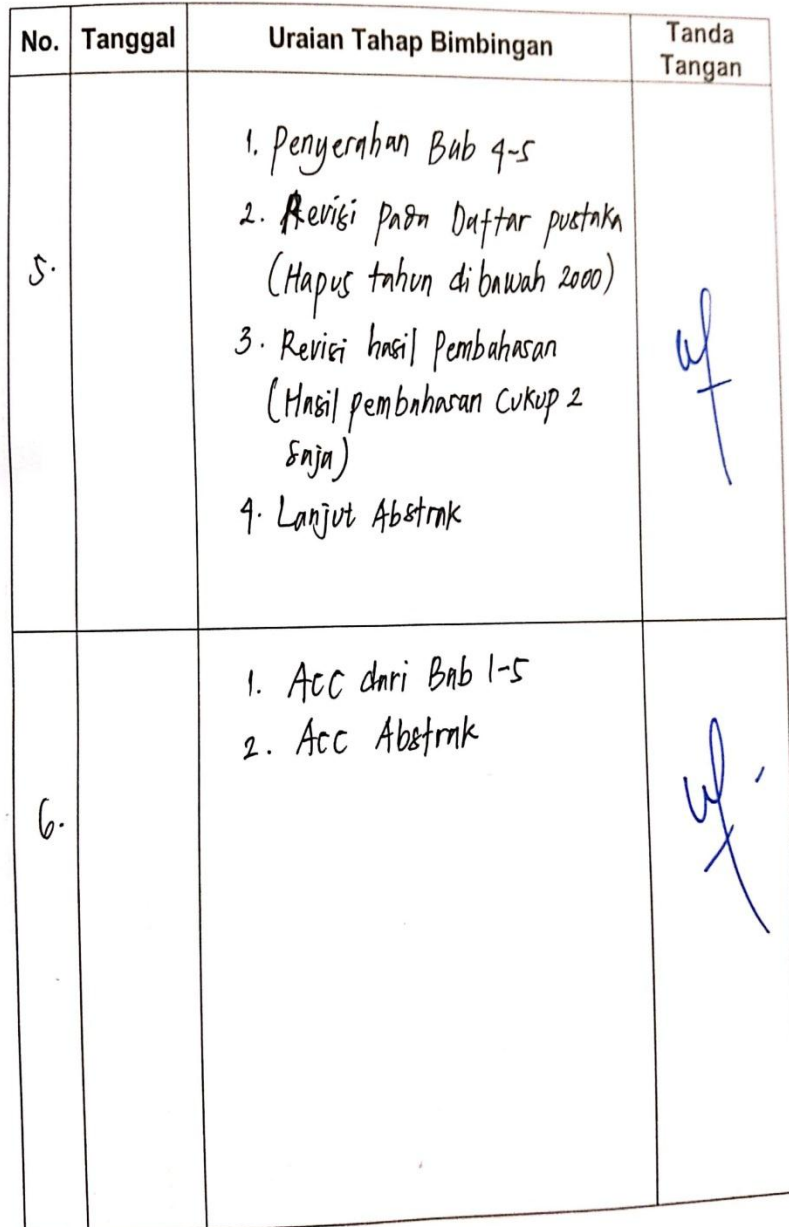 No. Tanggal Uraian Tahap Bimbingan Tanda Tangan
5.
1. Penyerahan Bab 4-5
2. Revisi pada Daftar pustaka
(Hapus tahun di bawah 2000)
3. Revisi hasil Pembahasan
(Hasil pembahasan Cukup 2
Saja)
4. Lanjut Abstrak
6.
1. Acc dari Bab 1-5
2. Acc Abstrak